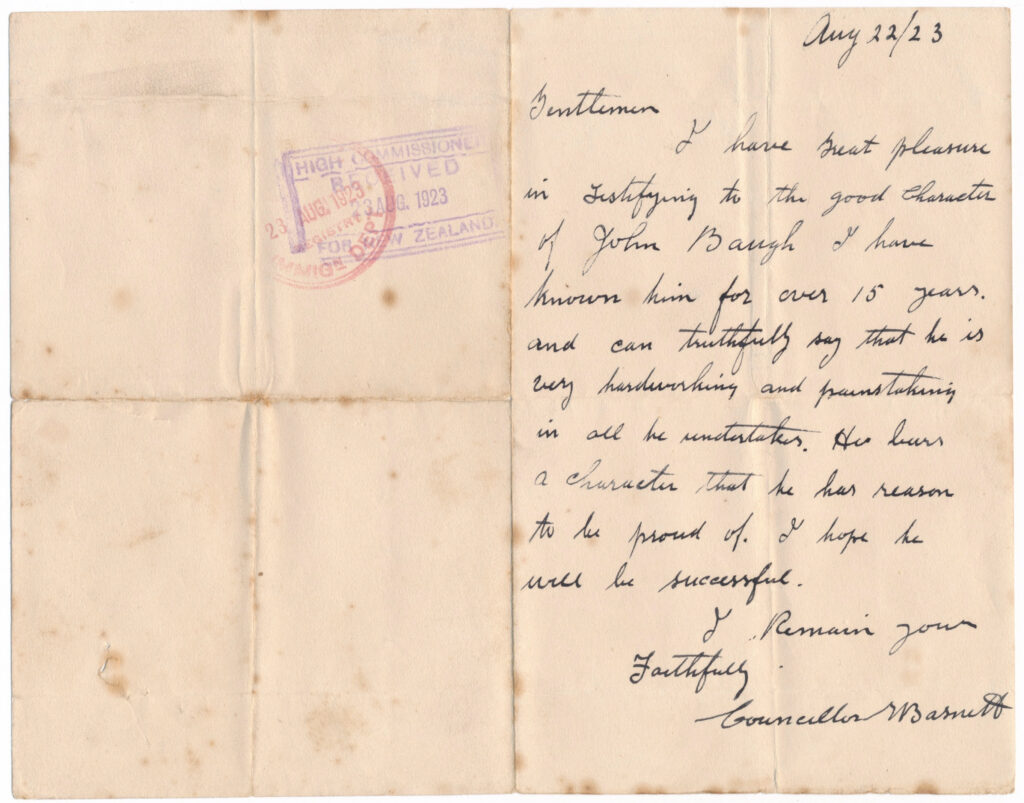 HIGH COMMISSIONER
RECEIVED
23 AUG. 1923
FOR NEW ZEALAND
23 AUG. 1923
REGISTRY
IMMIGN DEPT
Aug 22/23
Gentlemen
I have great pleasure
in testifying to the good Character
of John Baugh I have
known him for over 15 years.
and can truthfully say that he is
very hardworking and painstaking
in all he undertakes. He bears
a Character that he has reason
to be proud of. I hope he
will be successful.
I Remain your
Faithfully
Councillor Barnett